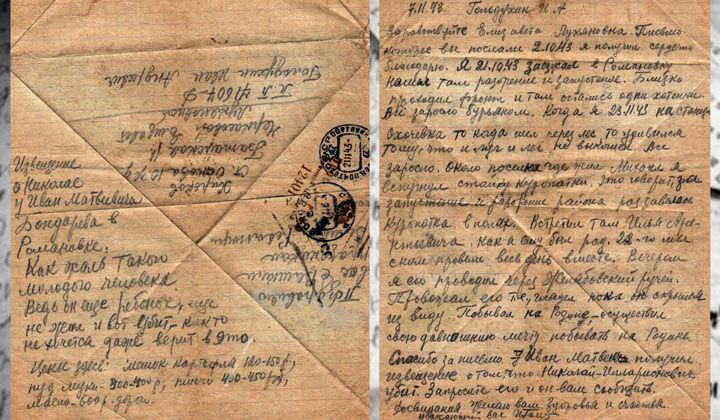 7.11.43 Голодухин И А
Здравствуйте Елизавета Лукяновна. Письмо
которое вы послали 2.10.43 я получил сердечно
благодарю. Я 21.10.43 заезжал в Романовку
нашел там разорение и запустение. Близко
проходил фронт и там остались одни хатенки.
Всё заросло бурьяном. Когда я 23.11.43 на станц.
охочевка то когда шел через лог то удивился
тому, что и луг и лес не выкошен. Все
заросло. Около поселка где жил Михаил я
вспугнул стайку куропатки. Это говорит за
запустение и разорение района раз завелась
куропатка в полях. Встретил там Илью Арсентьевича.
как я ему был рад. 22-го мы
с ним провели весь день вместе. Вечером
я его проводил через ручей.
Провожал его глядел пока он скрылся
из виду. Побывал на Родине осуществил
свою давнишнюю мечту побывать на Родине.
Спасибо за письмо. Иван Матвеич получил
извещение о том что Николай Илларионович
убит. Запросите его и он вам сообщит.
Досвидания Желаю вам здоровья и счастья
Ваш
Извещение
о Николае
у Иван Матвиевича
Бондарева в
Романовке.
Как жаль такого
молодого человека
Ведь он еще ребенок, еще
не жил и вот убит- как то
не хочется даже верит в это.
Цены здесь: мешок картофля 120-150 р,
пуд муки- 300-400 р, мясо 400-450 р,
масло- 600 р.
Харьков
Лукяновной
П П 41604-Д
Голодухин Иван Андреевич
Поздравляю
вас с Великим
Праздником
Революции